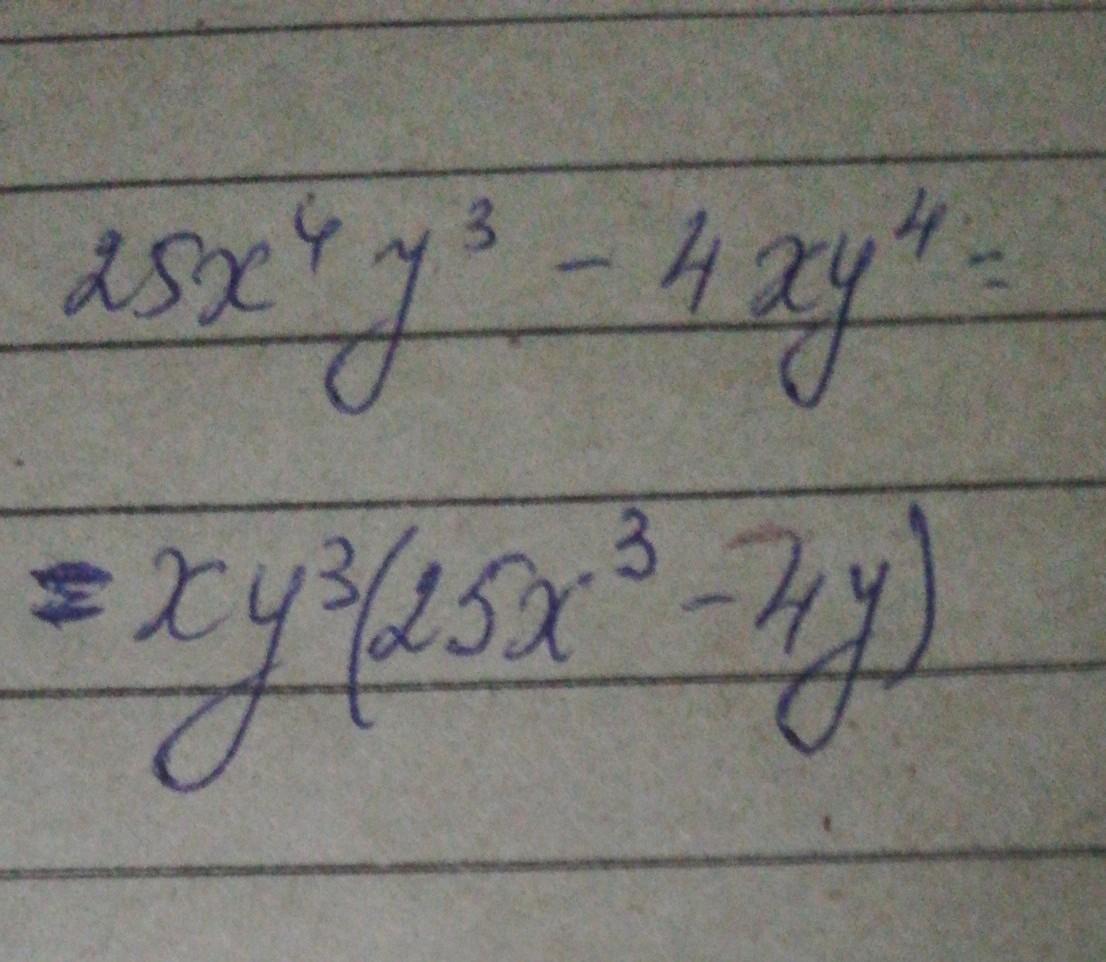 25x⁴y³ - 4xy⁴ =
= xy³(25x³ - 4y)